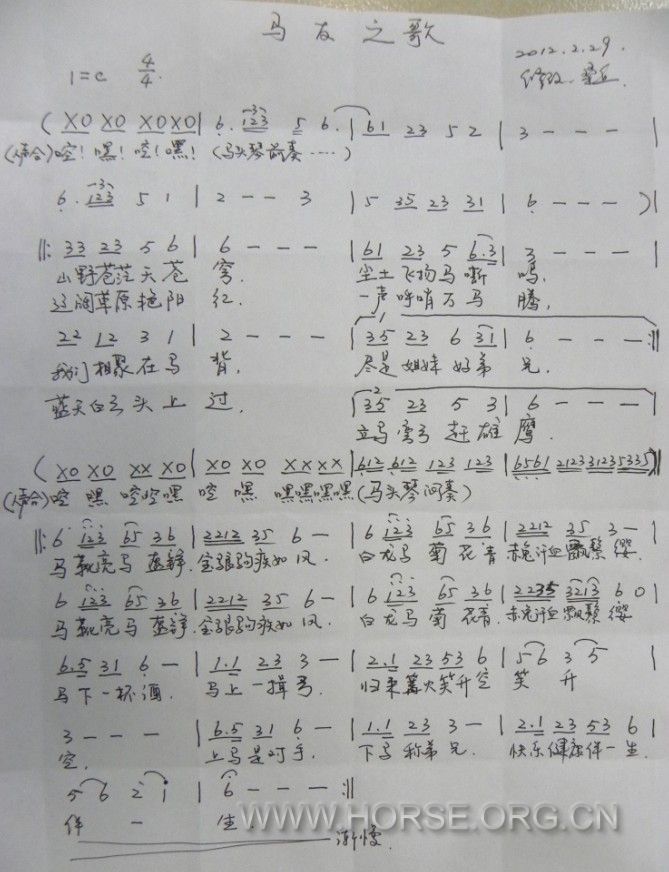 马友之歌
2012.2.29.
1=C 4/4
修改
( X0 X0 X0 X0 | 6. 123 5 6. | 61 23 5 2 | 3 - - - |
(人声合) 啌! 嘿! 啌! 嘿! (马头琴前奏……)
6. 123 5 1 | 2 - - 3 | 5 35 23 31 | 6 - - - )|
||: 33 23 5 6 | 6 - - - | 61 23 5 6.3 | 3 - - - |
山野苍茫天苍 穹. 尘土飞扬马嘶 鸣.
辽阔草原艳阳 红. 一声呼哨万马 腾,
22 12 3 1 | 2 - - - | 1 35 23 6 31 | 6 - - - :||
我们相聚在马 背, 尽是姐妹好弟 兄.
蓝天白云头上 过, 2 35 23 5 3 | 6 - - - |
立马弯弓赶雄 鹰.
( X0 X0 XX X0 | X0 X0 XX XX | 612 612 123 123 | 6561 2123 3123 5335 )|
(人声合) 啌 嘿 啌啌嘿 啌 嘿 嘿嘿嘿嘿 (马头琴间奏)
||: 6 123 65 36 | 2212 35 6 - | 6 123 65 36 | 2212 35 3 - |
马靴亮马 金银驹疾如风. 白龙马菊花青 赤兔汗血飘繁缨.
6 123 65 36 | 2212 35 6 - | 6 123 65 36 | 2235 3213 6 0 |
马靴亮马 金银驹疾如风. 白龙马菊花青. 赤兔汗血飘繁缨
6.5 31 6 - | 1.1 23 3 - | 2.1 23 53 6 | 5 6 3 5 |
马下一杯酒. 马上一揖弓 归来篝火笑升空 笑 升
3 - - - | 6.5 31 6 - | 1.1 23 3 - | 2.1 23 53 6 |
空. 上马是对手. 下马称弟兄. 快乐健康伴一生.
5 6 2 1 | 6 - - - :||
伴 一 生.
渐慢.
WWW.HORSE.ORG.CN